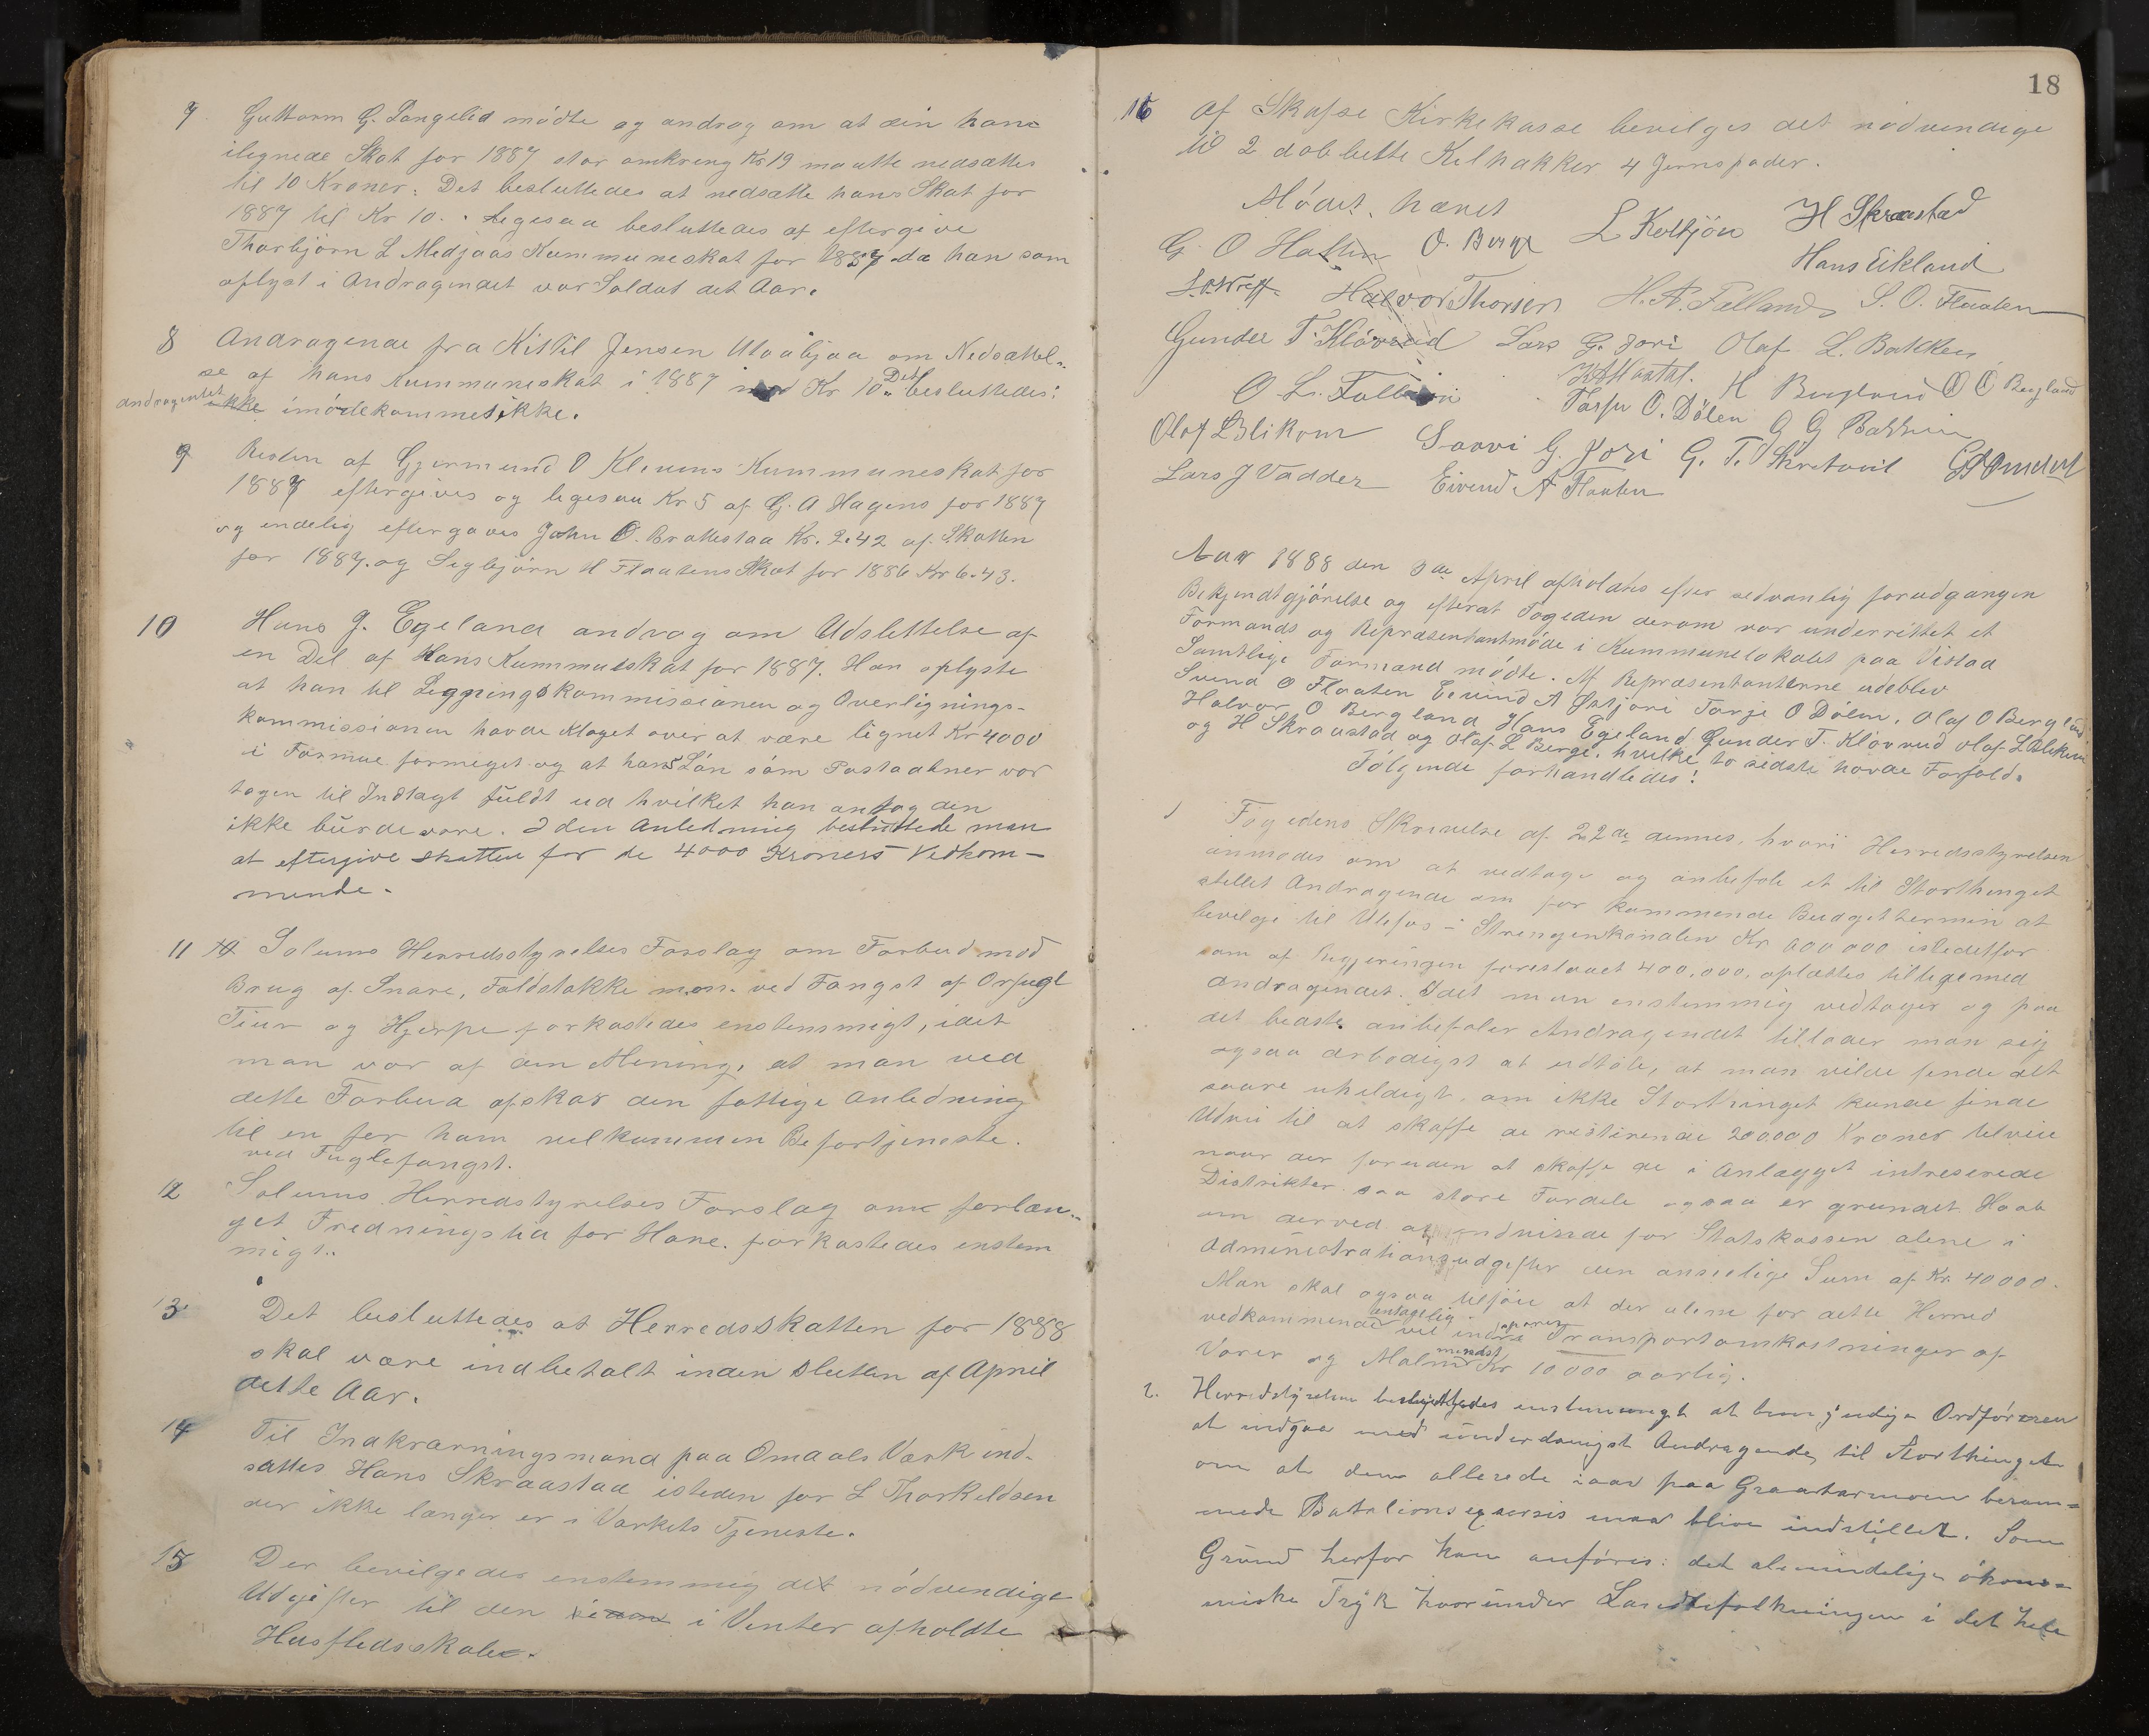 7 Guttorm G. Langelid mödte og androg om at den ham
ilignede Skat for 1887 stor omkring Kr 19 maatte nedsættes
til 10 Kroner. Det besluttedes at nedsætte hans Skat for
1887 til Kr 10. Ligesaa besluttedes at eftergive
Thorbjörn L Medjaas Kummuneskat for 1887 da han som
oplyst i Andragendet var Soldat det Aar.
8 Andragende fra Kittil Jensen om Nedsættel-
se af hans Kummuneskat i 1887 med Kr 10. Det besluttedes:
andragendet ikke imödekommes ikke.
9 Resten af Gjermund O Kleivens Kummuneskat for
1887 eftergives og ligesaa Kr 5 af G. A Hagens for 1887
og endelig eftergaves John O. Brattestaa Kr. 2.42 af Skatten
for 1887. og Sigbjörn H Flaatens Skat for 1886 Kr 6.43.
10 Hans J. Egeland androg om Udslettelse af
en Del af Hans Kummuneskat for 1887. Han oplyste
at han til Ligningskommissionen og Overlignings-
kommissionen havde klaget over at være lignet Kr 4000
i Formue formeget og at hans Lön som Postaabner var
tagen til Indtægt fuldt ud hvilket han antog den
ikke burde være. I den Anledning besluttede man
at eftergive skatten for de 4000 Kroners Vedkom-
mende.
11 10 Solums Herredsstyrelses Forslag om Forbud mod
Brug af Snare, Faldstokke m.m. ved Fangst af Orfugl
Tiur og Hjerpe forkastedes enstemmigt, idet
man var af den Mening, at man ved
dette Forbud afskar den fattige Anledning
til en for ham velkommen Bifortjeneste
ved Fuglefangst.
12 Solums Herredstyrelses Forslag om forlæn-
get Fredningstid for Hare. forkastedes enstem
migt.
13 Det besluttedes at Herredsskatten for 1888
skal være indbetalt inden Slutten af April
dette Aar.
14 Til Indkrævningsmand paa Omdals Værk ind-
sættes Hans Skraastad isteden for L Thorkeldsen
der ikke længer er i Værkets Tjeneste.
15 Der bevilgedes enstemmig det nödvendige
Udgifter til den i Vinter afholdte
Husflidsskole.
18
16 Af Skafse Kirkekasse bevilges det nödvendige
til 2 dobbelte Kilhakker 4 Jernspader.
Mödet hævet
G. O Hatlin O. Berge L Kolkjön H Skraastad
Hans Eikland
Halvor Thorsen H. A. Felland S. O. Flaaten
Gunder T. Klövrud Lars G. Jore Olaf L. Bakken
O L. H Bergland O O Bergland
Tarje O. Dölen G G Bakken
Olaf L Blikom Saavi G. Jore G. T. Skretveit
Lars J Vadder Eivind A Flaaten
Aar 1888 den 3de April afholdtes efter sedvanlig forudgangen
Bekjendtgjörelse og efterat Fogeden derom var underrettet et
Formands og Repræsentantmöde i Kummunelokalet paa Vistad
Samtlige Formænd mödte. Af Repræsentanterne udeblev
Svend O Flaaten Eivind A Östjore Tarje O Dölen, Olaf O Bergland
Halvor O Bergland Hans Egeland Gunder T. Klövrud Olaf L Blekum
og H Skraastad og Olaf L Berge, hvilke to sidste havde Forfald.
Fölgende forhandledes:
1 Fogedens Skrivelse af 22de dennes, hvori Herredsstyrelsen
anmodes om at vedtage og anbefale et til Storthinget
stillet Andragende om for kommende Budgettermin at
bevilge til Ulefos - Strengenkanalen Kr 600 000 istedetfor
som af Regjeringen foreslaaet 400,000, oplæstes tilligemed
andragendet. Idet man enstemmig vedtager og paa
det bedste anbefaler Andragendet tillader man sig
ogsaa ærbødigst at udtale, at man vilde finde det
saare uheldigt, om ikke Storthinget kunde finde
Udvei til at skaffe de resterende 200000 Kroner tilveie
naar der foruden at skaffe de i Anlægget intreserede
Distrikter saa store Fordele ogsaa er grundet Haab
om derved at indvinde for Statskassen alene i
Administrationsudgifter den anselige Sum af Kr. 40000.
Man skal ogsaa tilföie at der alene for dette Herred
vedkommende antagelig vil indspares Transportomkostninger af
Varer og Malm mindst Kr 10 000 aarlig.
2. Herredstyrelsen besluttedes enstemmigt at bemyndige Ordföreren
at indgaa med underdanigst Andragende til Storthinget
om at den allerede iaar paa Graatenmoen beram-
mede Batalionsexersis maa blive indstillet. Som
Grund herfor kan anföres: det almindelige ökono-
miske Tryk hvorunder Landbefolkningen i det hele